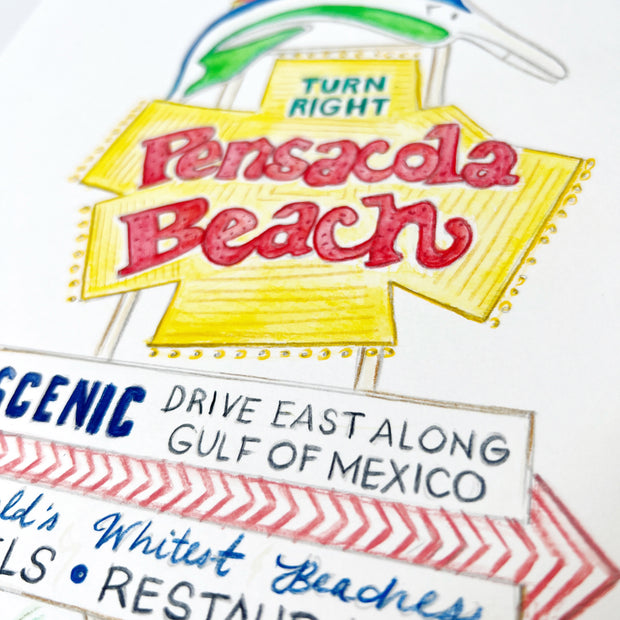 TURN
RIGHT
Pensacola
Beach
SCENIC DRIVE EAST ALONG
GULF OF MEXICO
Whitest Beaches
•